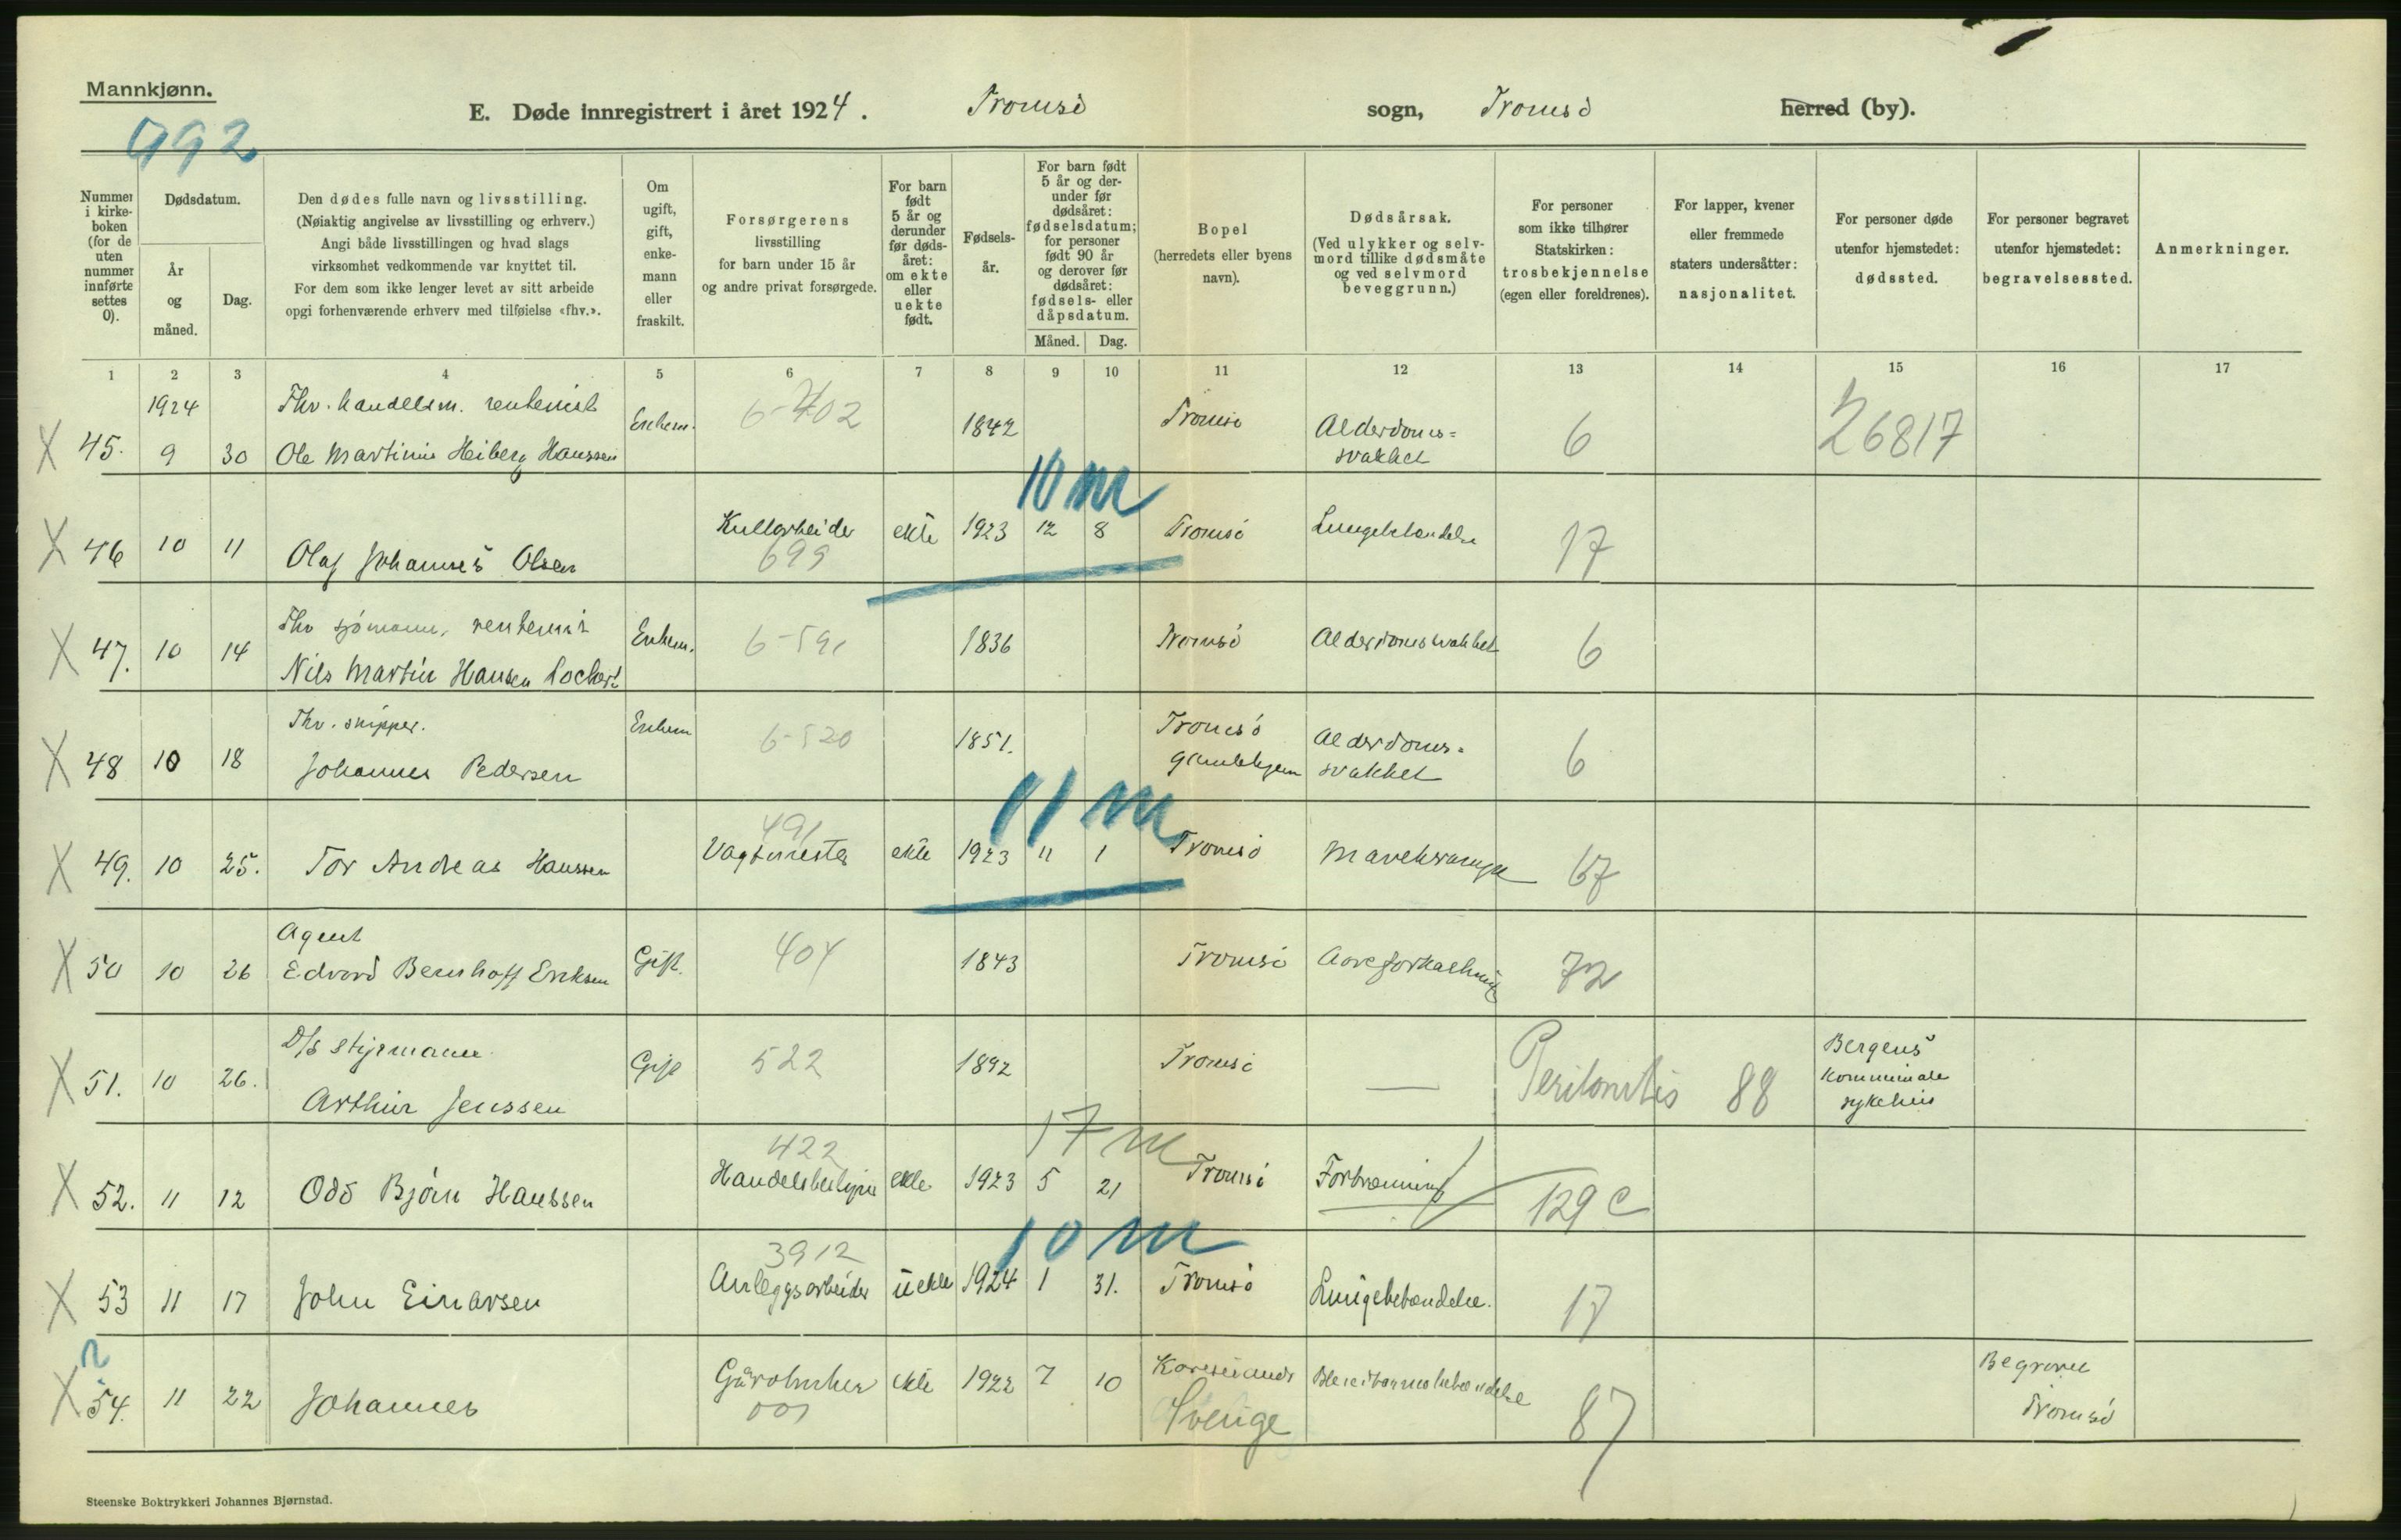 Mannkjønn.
E. Døde innregistrert i året 1924. Tromsö sogn, Tromsö herred (by).
992
Nummer i kirkeboken (for de uten nummer innførte settes 0).
Dødsdatum.
År og måned.
Dag.
Den dødes fulle navn og livsstilling.
(Nøiaktig angivelse av livsstilling og erhverv.)
Angi både livsstillingen og hvad slags
virksomhet vedkommende var knyttet til.
For dem som ikke lenger levet av sitt arbeide
opgi forhenværende erhverv med tilføielse «fhv.».
Om ugift, gift, enkemann eller fraskilt.
Forsørgerens
livsstilling
for barn under 15 år
og andre privat forsørgede.
For barn født 5 år og derunder før dødsåret: om ekte eller uekte født.
Fødselsår.
For barn født 5 år og derunder før dødsåret: fødselsdatum; for personer født 90 år og derover før dødsåret: fødsels- eller dåpsdatum.
Måned. Dag.
Bopel
(herredets eller byens
navn).
Dødsårsak.
(Ved ulykker og selvmord tillike dødsmåte og ved selvmord beveggrunn.)
For personer
som ikke tilhører
Statskirken:
trosbekjennelse
(egen eller foreldrenes).
For lapper, kvener
eller fremmede
staters undersåtter:
nasjonalitet.
For personer døde
utenfor hjemstedet:
dødssted.
For personer begravet
utenfor hjemstedet:
begravelsessted.
Anmerkninger.
1 2 3 4 5 6 7 8 9 10 11 12 13 14 15 16 17
1924 Fhv. handelsm. rentenist
X 45. 9 30 Ole Martinus Heiberg Hanssen Enkem. 6-402 1842 Tromsö Alderdoms=
svakhet 6 26817
10 m
X 46 10 11 Olaf Johannes Olsen Kullarbeider ekte 1923 12 8 Tromsö Lungebetendelse 17
699
Fhv sjömann, rentenist
X 47. 10 14 Nils Martin Hansen Lockert Enkem. 6-591 1836 Tromsö Alderdomsvakhet 6
Fhv. skipper.
X 48 10 18 Johannes Pedersen Enkem 6-520 1851. Tromsö
Gamlehjem Alderdoms=
svakhet 6
11 m
491
X 49. 10 25. Tor Andreas Hanssen Vagtmester ekte 1923 11 1 Tromsö Mavekrampe 67
Agent
X 50 10 26 Edvard Bernhoff Eriksen Gift. 404 1843 Tromsö Aareforkalkning 72
D/s styrmann
X 51. 10 26. Arthur Jenssen Gift 522 1892 Tromsö — Peritonitis 88 Bergens
kommunale
sykehus
17 m
422
X 52. 11 12 Odd Björn Hanssen Handelsbetjent ekte 1923 5 21 Tromsö Forbrænning 129 c
10 m
3912
X 53 11 17 John Einarsen Anleggsarbeider uekte 1924 1 31. Tromsö Lungebetændelse. 17
X 54. 11 22 Johannes Gårdbruker ekte 1922 7 10 Karesuando Blindtarmsbetændelse 87 Begravet
Tromsö
001 Sverige
Steenske Boktrykkeri Johannes Bjørnstad.